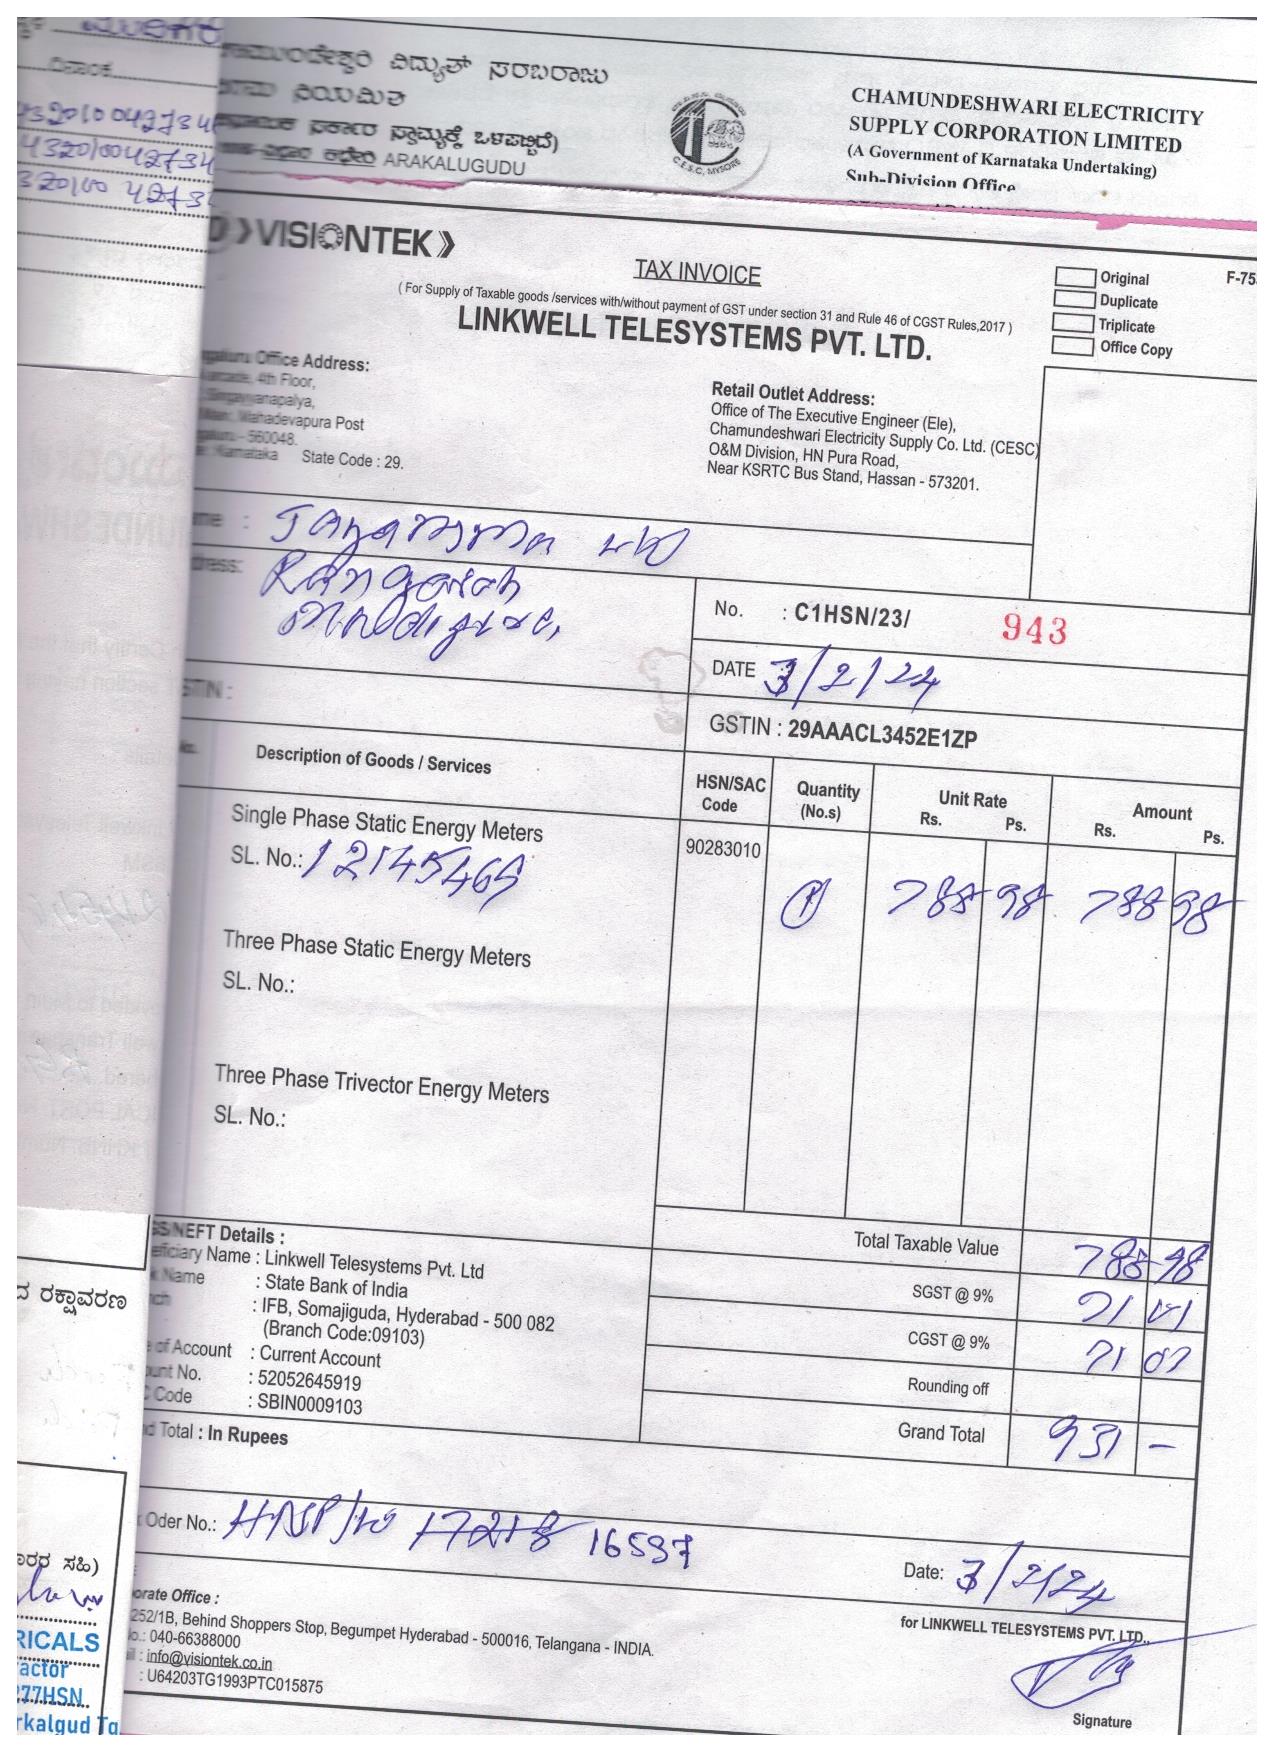 ದಿನಾಂಕ
ವಿದ್ಯುತ್ ಸರಬರಾಜು
ನಿಯಮಿತ
ಸರ್ಕಾರ ಸ್ವಾಮ್ಯಕ್ಕೆ ಒಳಪಟ್ಟಿದೆ)
ARAKALUGUDU
C.E.S.C, MYSORE
CHAMUNDESHWARI ELECTRICITY
SUPPLY CORPORATION LIMITED
(A Government of Karnataka Undertaking)
Sub-Division Office
VISIONTEK
TAX INVOICE
( For Supply of Taxable goods /services with/without payment of GST under section 31 and Rule 46 of CGST Rules,2017 )
LINKWELL TELESYSTEMS PVT. LTD.
Original
Duplicate
Triplicate
Office Copy
F-75
Office Address:
4th Floor,
Mahadevapura Post
- 560048.
Karnataka State Code : 29.
Retail Outlet Address:
Office of The Executive Engineer (Ele),
Chamundeshwari Electricity Supply Co. Ltd. (CESC)
O&M Division, HN Pura Road,
Near KSRTC Bus Stand, Hassan - 573201.
Rangaiah
No. : C1HSN/23/ 943
DATE 3/2/24
GSTIN : 29AAACL3452E1ZP
Description of Goods / Services
HSN/SAC Code
Quantity (No.s)
Unit Rate Rs. Ps.
Amount Rs. Ps.
Single Phase Static Energy Meters
SL. No.: 12145469
90283010 1 788 98 788 98
Three Phase Static Energy Meters
SL. No.:
Three Phase Trivector Energy Meters
SL. No.:
Total Taxable Value 788 98
SGST @ 9% 71 01
CGST @ 9% 71 01
Rounding off
Grand Total 931 -
NEFT Details :
Name : Linkwell Telesystems Pvt. Ltd
Name : State Bank of India
: IFB, Somajiguda, Hyderabad - 500 082
(Branch Code:09103)
of Account : Current Account
No. : 52052645919
Code : SBIN0009103
Total : In Rupees
Oder No.: 16597
Date: 3/2/24
Office :
252/1B, Behind Shoppers Stop, Begumpet Hyderabad - 500016, Telangana - INDIA.
040-66388000
: info@visiontek.co.in
: U64203TG1993PTC015875
for LINKWELL TELESYSTEMS PVT. LTD.,
Signature
ರಕ್ಷಾವರಣ
ಸಹಿ)
RICALS
277HSN
rkalgud